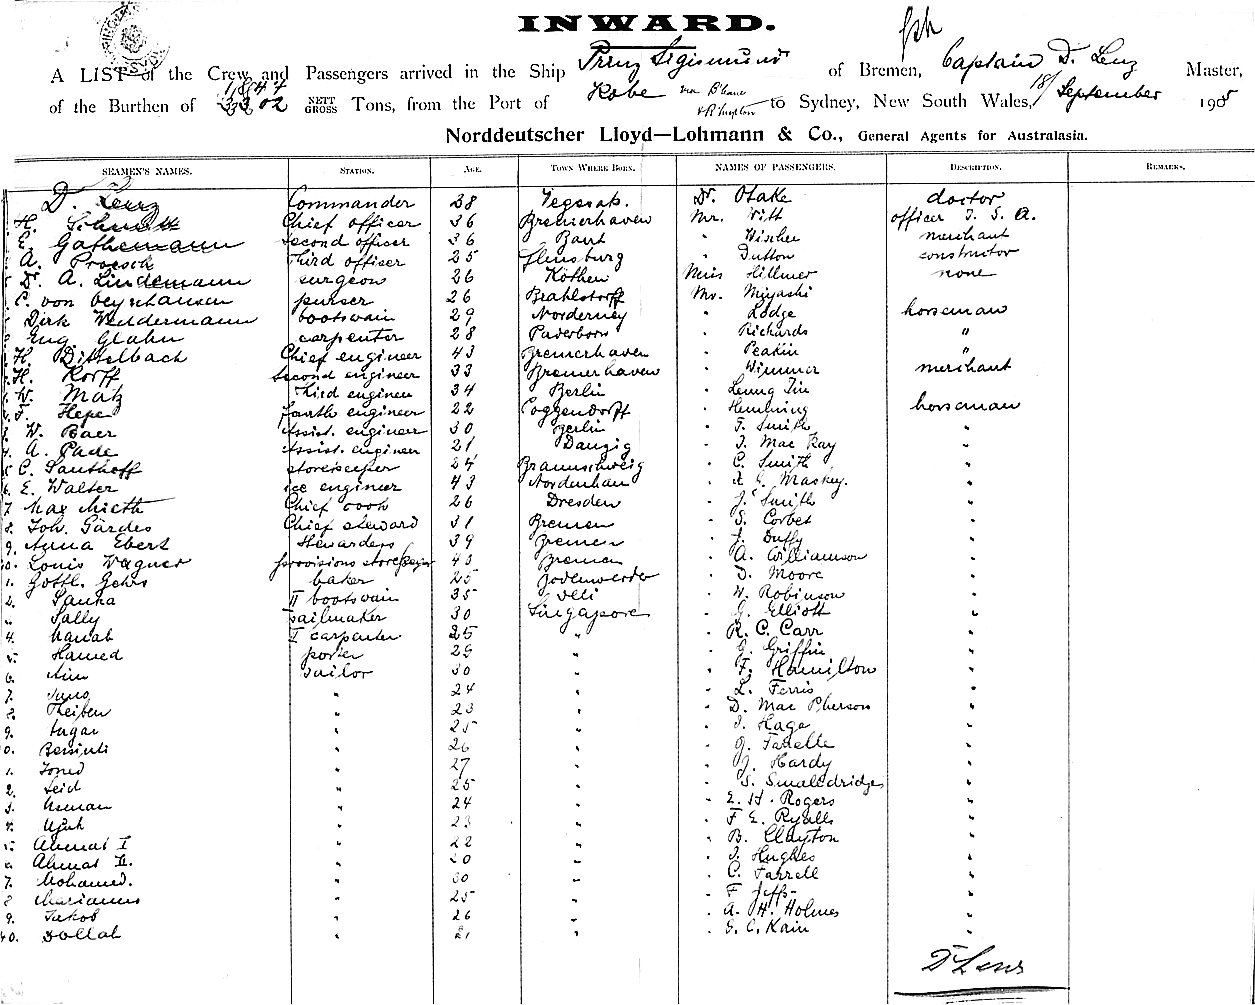 INWARD.
A LIST of the Crew and Passengers arrived in the Ship Prinz Sigismund of Bremen, Captain D. Lenz Master,
of the Burthen of 1847 3302 NETT GROSS Tons, from the Port of Kobe via B'bane to Sydney, New South Wales, 18/ September 1905
Norddeutscher Lloyd—Lohmann & Co., General Agents for Australasia.
SEAMEN'S NAMES. STATION. AGE. TOWN WHERE BORN. NAMES OF PASSENGERS. DESCRIPTION. REMARKS.
D. Lenz Commander 38 Vegesak. Dr. Otake doctor
H. Schmidt Chief officer 36 Bremerhaven Mr. Witt officer
E. Gathemann second officer 36 Bant " Wischer merchant
A. Proesch Third officer 25 Flensburg " Dutton constructor
5 Dr. A. Lindemann surgeon 26 Köthen Miss Hillmer none
C. von Oeynhausen purser 26 Brahlstorff Mr. Miyashi
Dirk Weddermann bootswain 29 Norderney " Lodge horseman
Eug. Glahn carpenter 28 Paderborn " Richards "
H. Dittelbach Chief engineer 43 Bremerhaven " Peakin "
H. Korff second engineer 33 Bremerhaven " Wimmer merchant
W. Matz Third engineer 34 Berlin " Leung Tin
F. Hepe fourth engineer 22 Poggendorff " Hemming horseman
W. Baer Assist. engineer 30 Berlin " T. Smith "
4. A. Pade Assist. engineer 21 Danzig " J. Mac Kay "
5 C. Santhoff storekeeper 24 Braunschweig " C. Smith "
6. E. Walter ice engineer 43 Nordenham " A G. Mackey. "
7 Max Mieth Chief cook 26 Dresden " J. Smith "
8. Joh. Gärdes Chief steward 31 Bremen " S. Corbet "
9. Anna Ebert stewardess 39 Bremen " J. Duffy "
0. Louis Wagner provisions storekeeper 43 Bremen " A. Williamson "
1. Gottl. Gehrs baker 25 Bodenwerder " D. Moore "
2. II bootswain 35 Deli " W. Robinson "
" Sally sailmaker 30 Singapore " G. Elliott "
4. II carpenter 25 " " R. C. Carr "
5. Hamed porter 29 " " G. Griffin "
6. Sailor 30 " " F. Hamilton "
7. " 24 " " L. Ferris "
8. " 23 " " D. Mac Pherson "
9. " 25 " " J. Hage "
0. " 26 " "
1. " 27 " " J. Hardy "
2. Seid " 25 " " S. Smalldridges "
3. " 24 " " E. H. Rogers "
4. " 23 " " F E. Ryalls "
5. Ahmat I " 22 " " B. Clayton "
6. Ahmat II. " 20 " " J. Hughes "
7. Mohamed. " 30 " " C. Farrell "
8 " 25 " " F Jeffs "
9. Jakob " 26 " " A. H. Holmes "
40. Dollah " 21 " " G. C. Kain "
D Lenz